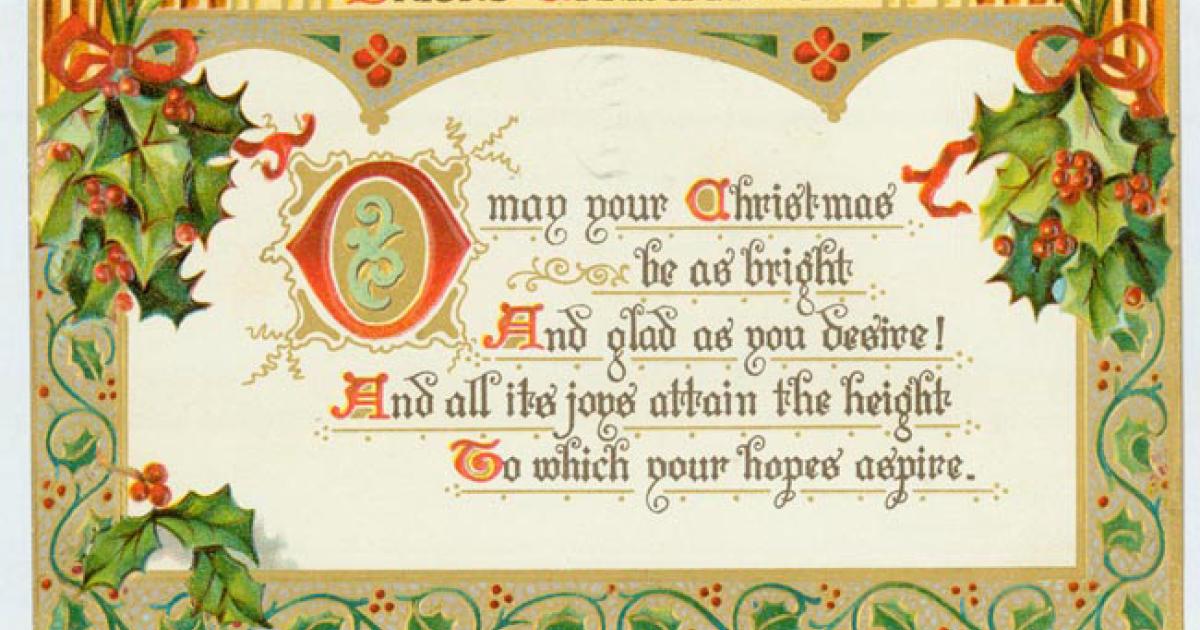 O may your Christmas
be as bright
And glad as you desire!
And all its joys attain the height
To which your hopes aspire.